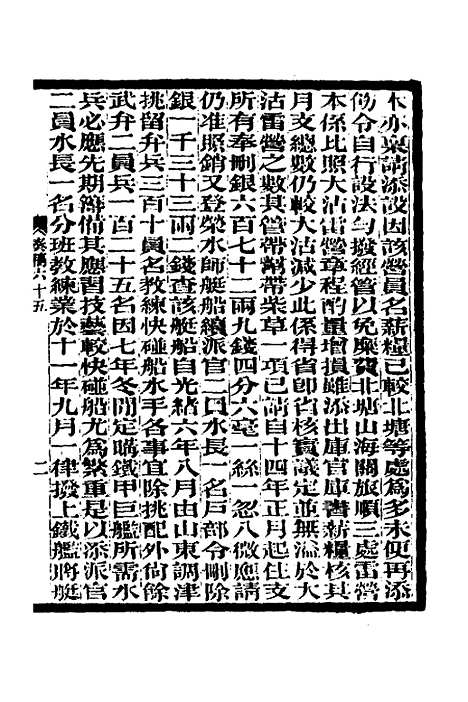 本亦稟請添設因該營員名薪糧已較北塘等處為多未便再添
飭令自行設法勻撥經管以免糜費北塘山海關旅順三處雷營
本係比照大沽雷營章程酌量增損雖添出庫官庫書薪糧核其
月支總數仍較大沽減少此係得省卽省核實議定並無溢於大
沽雷營之數其管帶幫帶柴草一項已飭自十四年正月起住支
所有奉刪銀六百七十二兩九錢四分六毫一絲一忽八微應請
仍准照銷又登榮水師艇船續派官二員水長一名戶部令刪除
銀一千三十三兩二錢查該艇船自光緒六年八月由山東調津
挑留弁兵三百十員名教練快碰船水手各事宜除挑配外尚餘
武弁二員兵一百二十五名因七年冬間定購鐵甲巨艦所需水
兵必應先期籌備其應習技藝較快碰船尤為繁重是以添派官
二員水長一名分班教練業於十一年九月一律撥上鐵艦將艇
奏稿六十五
二